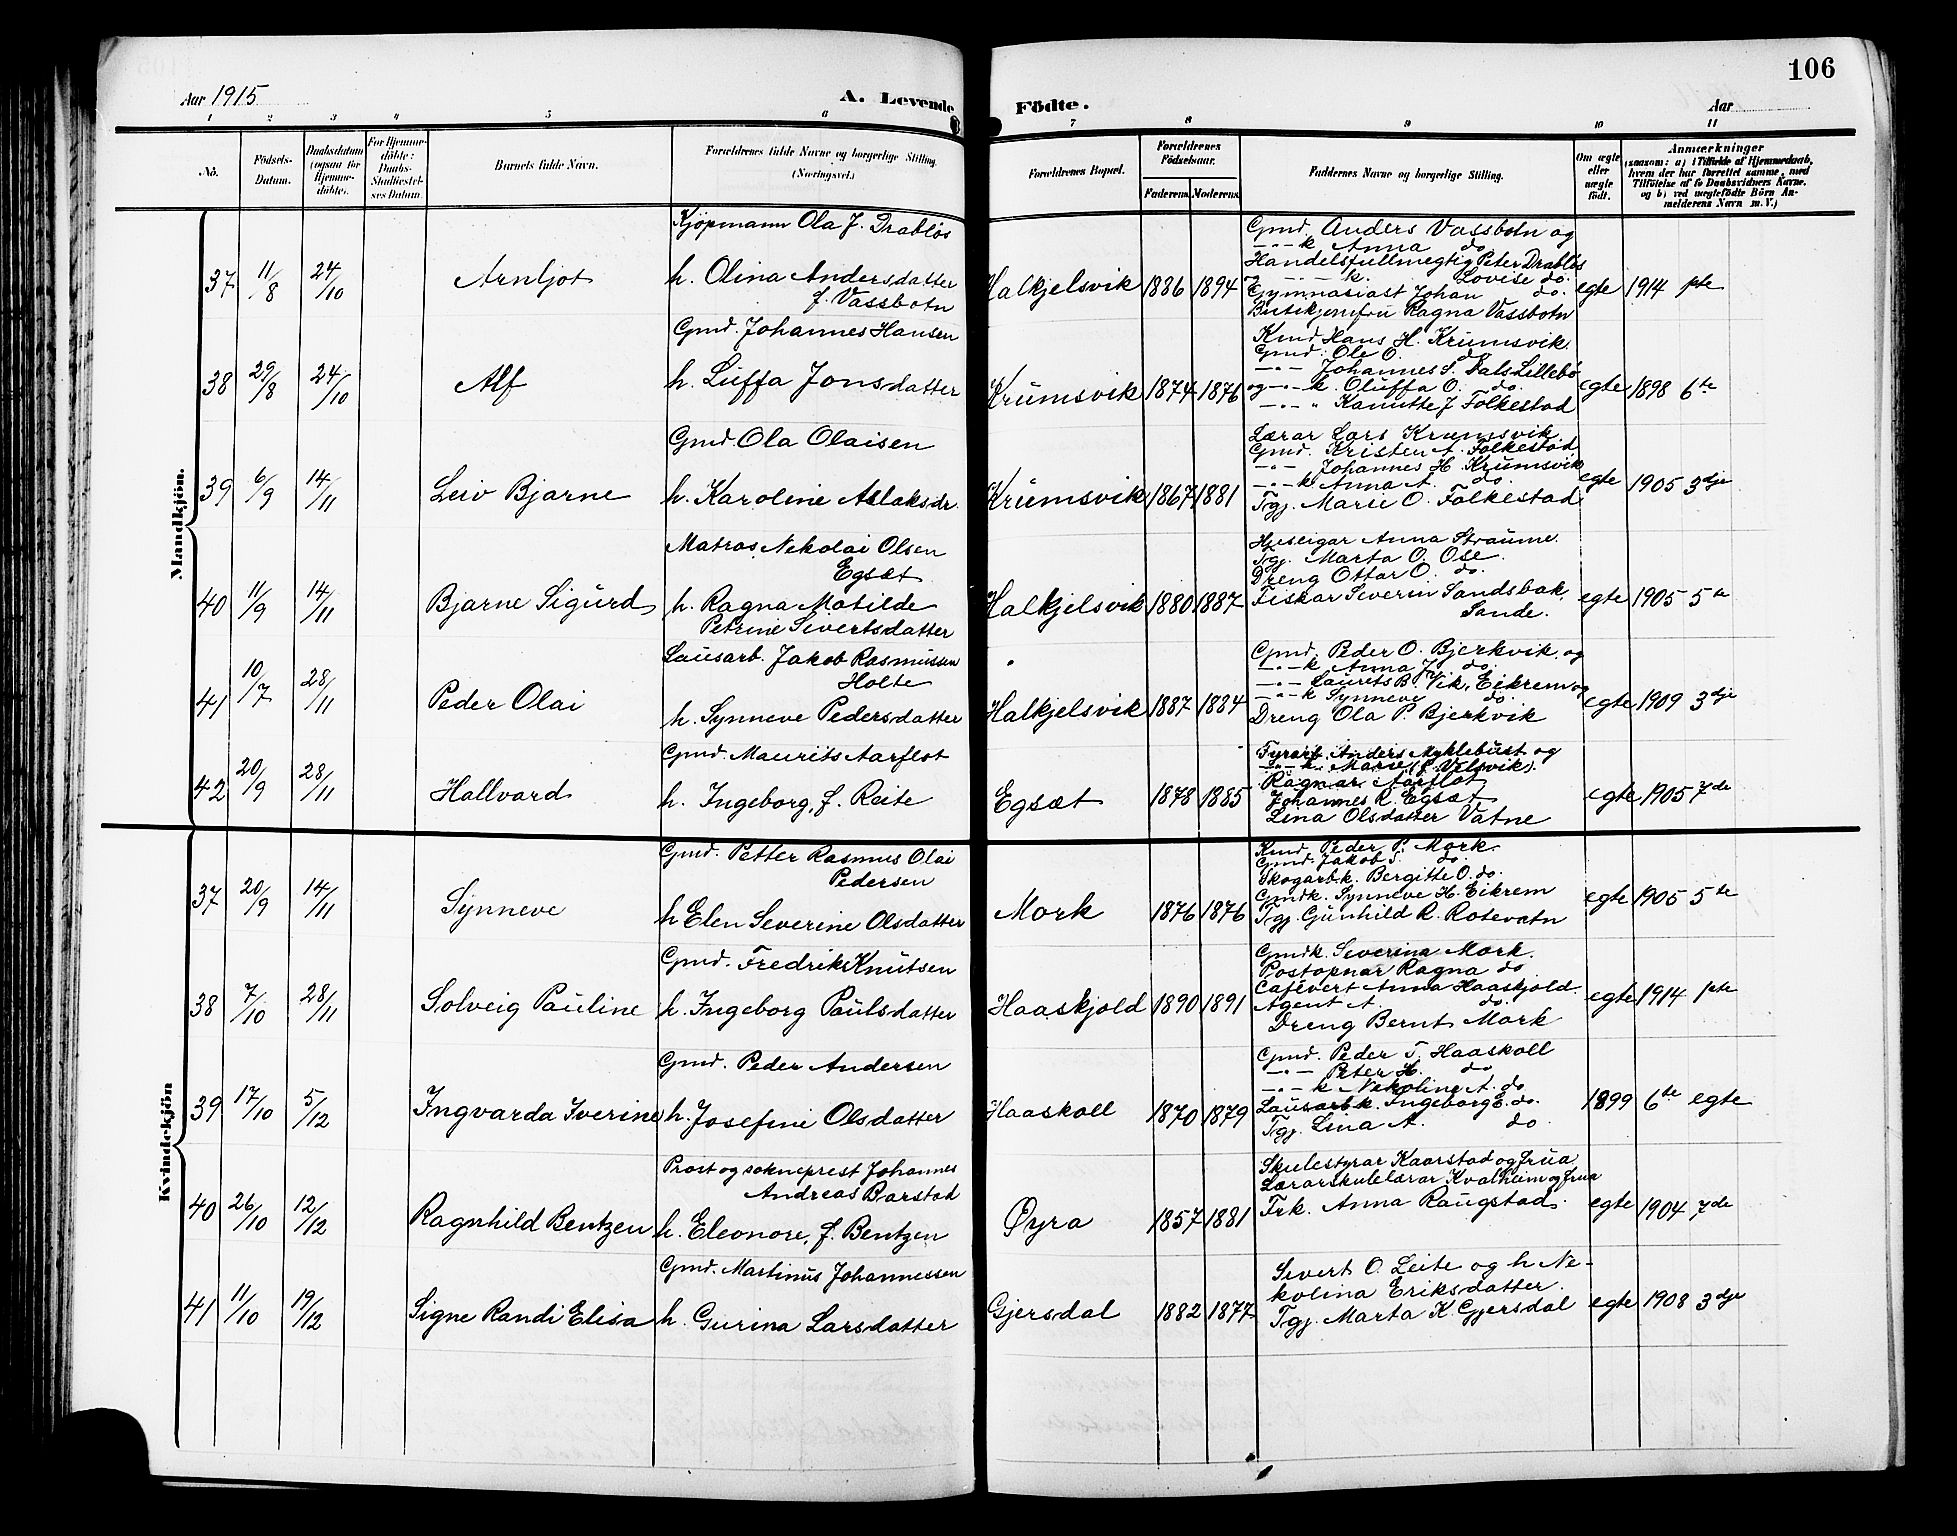 106
Aar 1915
A. Levende Födte.
Aar
1 2 3 4 5 6 7 8 9 10 11
No.
Födsels-Datum.
Daabsdatum (ogsaa for Hjemme-döbte).
For Hjemme-döbte: Daabs-Stadfæstel-ses Datum.
Barnets fulde Navn.
Forældrenes fulde Navne og borgerlige Stilling. (Næringsvei.)
Forældrenes Bopæl.
Forældrenes Födselsaar.
Faderens. Moderens.
Faddernes Navne og borgerlige Stilling.
Om ægte eller uægte födt.
Anmærkninger
(saasom: a) i Tilfælde af Hjemmedaab, hvem der har forrettet samme, med Tilföielse af to Daabsvidners Navne, og b) ved uægtefödte Börn An-melderens Navn m. V.)
Mandkjön.
37 11/8 24/10 Arnljot
Kjöpmann Ola J. Drabløs
h. Olina Andersdatter
f. Vassbotn
Halkjelsvik 1886 1894
Gmd. Anders Vassbotn og
—"— k Anna do
Handelsfullmegtig Peter Drabløs
og —"— k. Lovise do.
Gymnasiast Johan do.
Butikjomfru Ragna Vassbotn
egte 1914 1ste
38 29/8 24/10 Alf
Gmd. Johannes Hansen
h. Luffa Jonsdatter
Krumsvik 1874 1876
Kmd Hans H. Krumsvik
Gmd. Ole O. do
—"— Johannes S. Dals Lillebø
og —"— k. Oluffa O. do.
—"— " Kanutte J Folkestad
egte 1898 6te
39 6/9 14/11 Leiv Bjarne
Gmd Ola Olaisen
h. Karoline Aslaksdr.
Krumsvik 1867 1881
Lærar Lars Krumsvik
Gmd. Kristen A. Folkestad
—"— Johannes H. Krumsvik
—"— k Anna A. do.
Tgj. Marie O. Folkestad
egte 1905 3dje
40 11/9 14/11 Bjarne Sigurd
Matros Nekolai Olsen
Egsæt
h. Ragna Motilde
Petrine Sivertsdatter
Halkjelsvik 1880 1887
Huseigar Anna Straume
Tgj. Marta O. Ose.
Dreng Ottar O. do.
Fiskar Severin Sandsbak,
Sande.
egte 1905 5te
41 10/7 28/11 Peder Olai
Lausarb. Jakob Rasmussen
Holte
h. Synneve Pedersdatter
Halkjelsvik 1887 1884
Gmd. Peder O. Bjerkvik. og
—"— k Anna J do.
—"— Laurits B. Vik, Eikrem og
—"— k Synneve do
Dreng Ola P. Bjerkvik
egte 1909 3dje
42 20/9 28/11 Hallvard
Gmd. Maurits Aarflot
h. Ingeborg, f. Reite
Egsæt 1878 1885
Fyrarb. Anders Myklebust og
—"— k. Marie (f. Velsvik).
Ragnar Aarflot
Johannes R. Egsæt
Lina Olsdatter Vatne
egte 1905 7de
Kvindekjön
37 20/9 14/11 Synneve
Gmd. Petter Rasmus Olai
Pedersen
h Elen Severine Olsdatter
Mork 1876 1876
Kmd Peder P. Mork
Gmd. Jakob S. do.
Skogarb.k. Bergitte O. do.
Gmdk. Synneve H. Eikrem
Tgj. Gunhild R. Rotevatn
egte 1905 5te
38 7/10 28/11 Solveig Pauline
Gmd. Fredrik Knutsen
h. Ingeborg Paulsdatter
Haaskjold 1890 1891
Gmdk. Severina Mork.
Postopnar Ragna do
Cafévert Anna Haaskjold.
Agent A. do.
Dreng Bernt Mork
egte 1914 1ste
39 17/10 5/12 Ingvarda Iverine
Gmd. Peder Andersen
h. Josefine Olsdatter
Haaskoll 1870 1879
Gmd. Peder T. Haaskoll
—"— Peter H. do
—"— k Nekoline A. do
Lausarb.k. Ingeborg E. do.
Tgj. Lina A. do
1899 6te egte
40 26/10 12/12 Ragnhild Bentzen
Prost og sokneprest Johannes
Andreas Barstad
h. Eleonore, f. Bentzen
Øyra 1857 1881
Skulestyrar Kaarstad og frua
Lærarskulelærar Kvalheim og frua
Frk. Anna Raugstad.
egte 1904 7de
41 11/10 19/12 Signe Randi Elisa
Gmd. Martinus Johannessen
h. Gurina Larsdatter
Gjersdal 1882 1877
Sivert O. Leite og h Ne-
kolina Eriksdatter.
Tgj. Marta K. Gjersdal
egte 1908 3dje